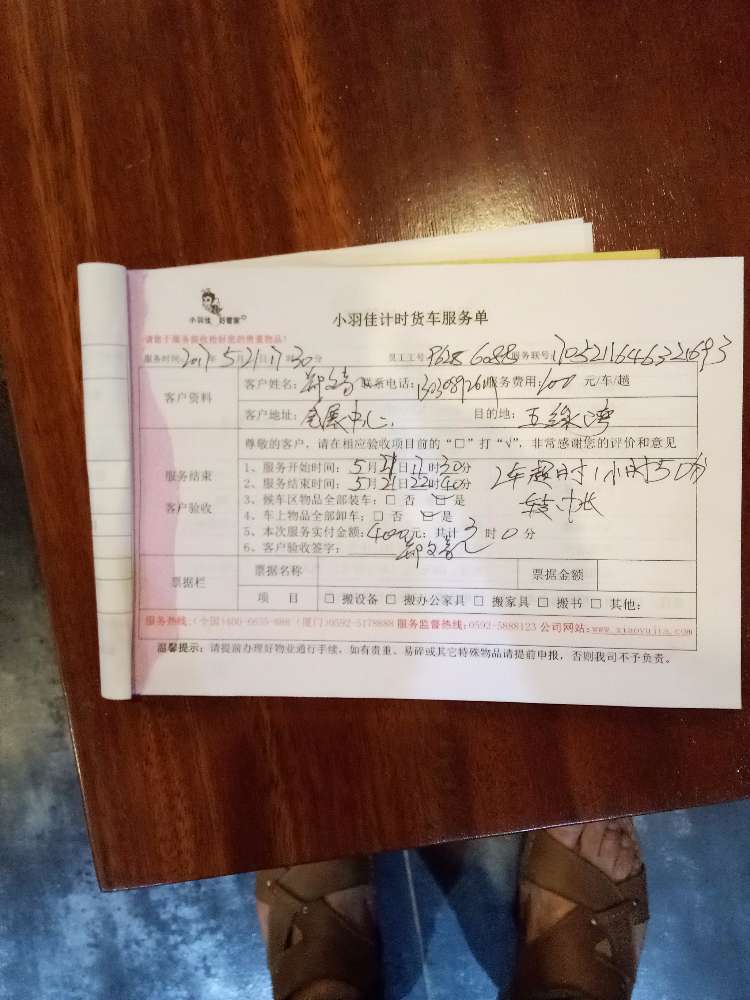 小羽佳 好管家
小羽佳计时货车服务单
请您于服务前收检好您的贵重物品!
服务时间:2017年5月21日17时30分 员工工号: 服务联号:170521164632693
客户资料
客户姓名: 联系电话: 服务费用:100元/车/趟
客户地址:会展中心 目的地:五缘湾
服务结束
客户验收
尊敬的客户,请在相应验收项目前的“□”打“√”,非常感谢您的评价和意见
1、服务开始时间:5月21日17时30分
2、服务结束时间:5月21日22时40分
2车超时1小时50分
3、候车区物品全部装车:□ 否 □ 是
4、车上物品全部卸车:□ 否 □ 是
5、本次服务实付金额:400元:共计3时0分
6、客户验收签字:
票据栏
票据名称 票据金额
项 目 □ 搬设备 □ 搬办公家具 □ 搬家具 □ 搬书 □ 其他:
服务热线:(全国)400-6635-688 (厦门)0592-5178888 服务监督热线:0592-5888123 公司网站:www.xiaoyujia.com
温馨提示:请提前办理好物业通行手续,如有贵重、易碎或其它特殊物品请提前申报,否则我司不予负责。